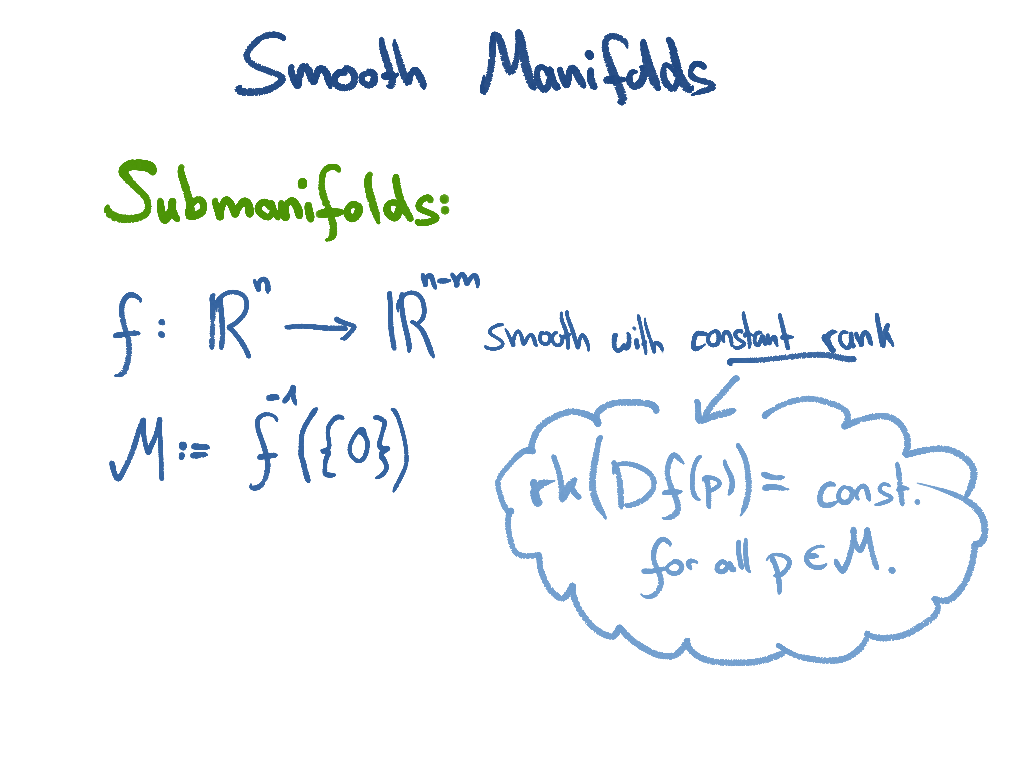 Smooth Manifolds
Submanifolds:
f: ℝⁿ → ℝⁿ⁻ᵐ smooth with constant rank
M := f⁻¹({0})
rk(Df(p)) = const.
for all p ∈ M.